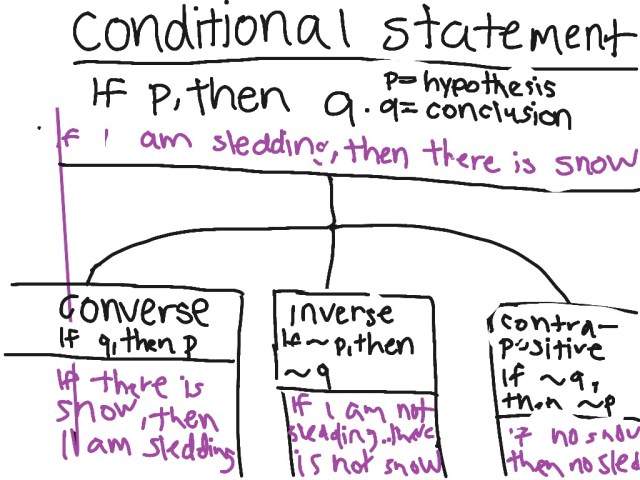 Conditional statement
If p, then q.
p= hypothesis
q= conclusion
If I am sledding, then there is snow
Converse
If q, then p
If there is
snow, then
I am sledding
inverse
If ~ p, then
~ q
If I am not
sledding.. there
is not snow
contra-
positive
If ~q,
then ~p
if no snow
then no sled